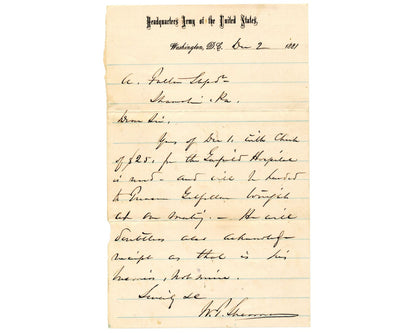 Headquarters Army of the United States,
Washington, D.C. Dec 2 1881
A. Fulton Esq.
Shamokin Pa.
Dear Sir,
Yrs of Dec 1. with Check
of $25. for the Garfield Hospital
is recd - and will be handed
to Treasurer Gilfillan tonight
at our meeting. - He will
doubtless also acknowledge
receipt as that is his
business, not mine.
W. T. Sherman